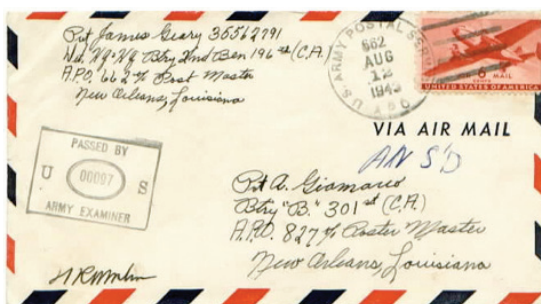 Pvt James Geary 35562791
Hd. Hq-Hq Btry 2nd Bn 196th (C.A.)
A.P.O. 662 % Post Master
New Orleans, Louisiana
U.S. ARMY POSTAL SERVICE
662
AUG
13
1943
A.P.O.
6
CENTS
AIR MAIL
UNITED STATES OF AMERICA
VIA AIR MAIL
ANS'D
PASSED BY
U 00097 S
ARMY EXAMINER
Pvt A. Giomarco
Btry "B." 301st (C.A.)
A.P.O. 827 % Poster Master
New Orleans, Louisiana